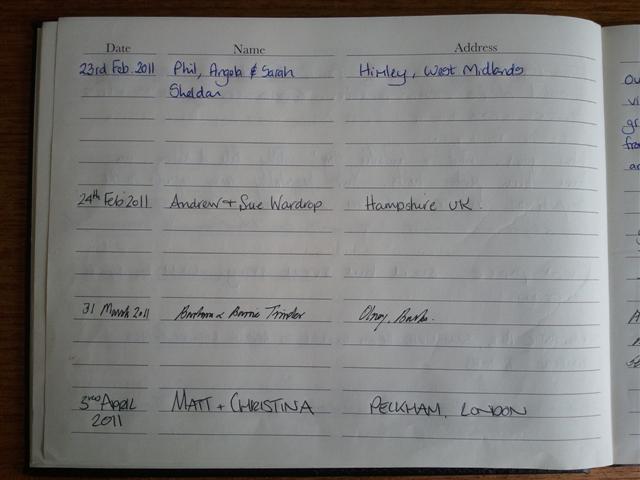 Date Name Address
23rd Feb 2011 Phil, Angela & Sarah Himley, West Midlands
Sheldon
24th Feb 2011 Andrew + Sue Wardrop Hampshire UK.
31 March 2011 Barbara & Trinder Olney, Bucks.
3rd APRIL MATT + CHRISTINA PECKHAM, LONDON
2011